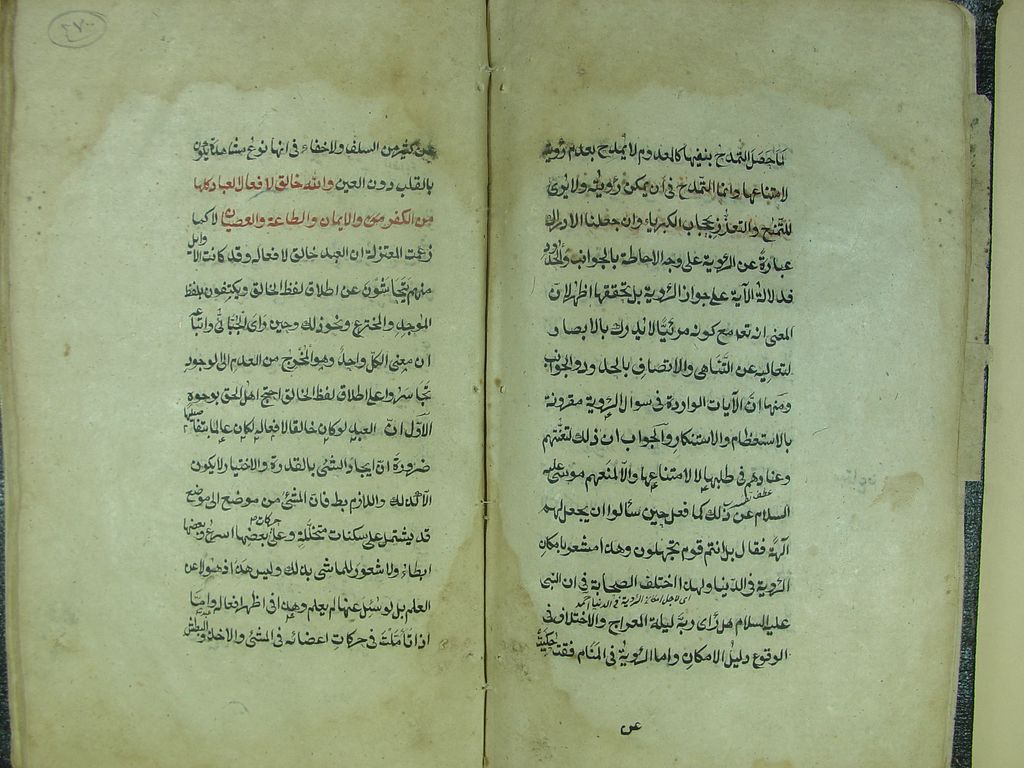 لما حصل التمدح بنفيها كالمعدوم لا يمدح بعدم رؤيته
لامتناعها وانما التمدح في ان يمكن رؤيته ولا يرى
للتمنع والتعذر بحجاب الكبرياء وان جعلنا الادراك
عبارة عن الرؤية على وجه الاحاطة بالجوانب والحدود
فدلالة الآية على جواز الرؤية بل تحققها اظهر لان
المعنى انه تعه مع كونه مرئيا لا يدرك بالابصار
لتعاليه عن التناهي والاتصاف بالحدود والجوانب
ومنها ان الآيات الواردة في سوال الرؤية مقرونة
بالاستعظام والاستنكار والجواب ان ذلك لتعنتهم
وعنادهم في طلبها لا لامتناعها والا لمنعهم موسى عليه
السلام عن ذلك كما فعل حين سألوا ان يجعل لهم
آلهة فقال بل انتم قوم تجهلون وهذا مشعر بامكان
الرؤية في الدنيا ولهذا اختلف الصحابة في ان النبي
اى لاجل امكان الرؤية في الدنيا
عليه السلام هل رأى ربه ليلة المعراج والاختلاف في
الوقوع دليل الامكان واما الرؤية في المنام فقد حكيت
عن
٢٧٠
عن كثير من السلف ولا خفاء في انها نوع مشاهدة يكون
بالقلب دون العين والله خالق لافعال العباد كلها
من الكفر والايمان والطاعة والعصيان لا كما
زعمت المعتزلة ان العبد خالق لافعاله وقد كانت الاوايل
منهم يتحاشون عن اطلاق لفظ الخالق ويكتفون بلفظ
الموجد والمخترع ونحو ذلك وحين راى الجبائي واتباعه
ان معنى الكل واحد وهو المخرج من العدم الى الوجود
تجاسروا على اطلاق لفظ الخالق احتج اهل الحق بوجوه
الاول ان العبد لو كان خالقا لافعاله لكان عالما بتفاصيلها
ضرورة ان ايجاد الشئ بالقدرة والاختيار لا يكون
الا كذلك واللازم بط فان المشي من موضع الى موضع
قد يشتمل على سكنات متخللة وعلى حركات بعضها اسرع وبعضها
ابطاء ولا شعور للماشي بذلك وليس هذا ذهولا عن
العلم بل لو سئل عنها لم يعلم وهذا في اظهر افعاله واما
اذا تأملت في حركات اعضائه في المشي والاخذ والبطش